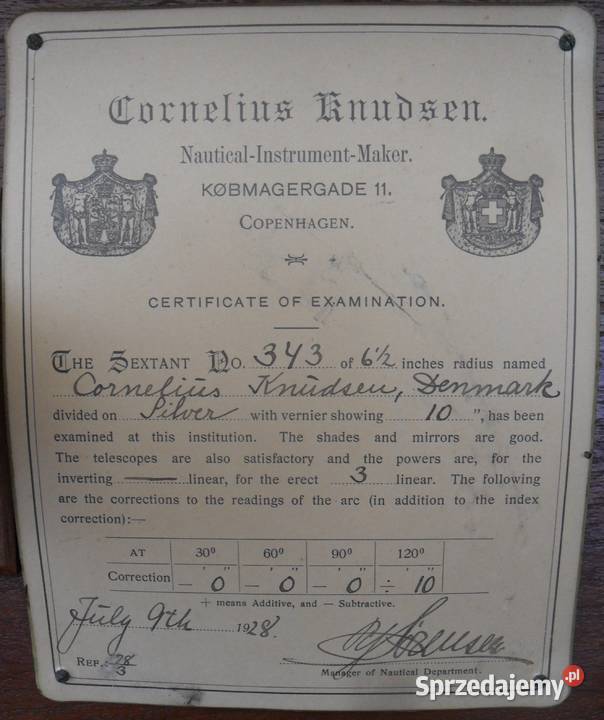 Cornelius Knudsen.
Nautical-Instrument-Maker.
KØBMAGERGADE 11.
COPENHAGEN.
CERTIFICATE OF EXAMINATION.
THE SEXTANT NO. 343 of 6½ inches radius named
Cornelius Knudsen, Denmark
divided on Silver with vernier showing 10 ", has been
examined at this institution. The shades and mirrors are good.
The telescopes are also satisfactory and the powers are, for the
inverting — linear, for the erect 3 linear. The following
are the corrections to the readings of the arc (in addition to the index
correction):—
AT 30° 60° 90° 120°
Correction — ' 0 " — ' 0 " — ' 0 " ÷ ' 10 "
+ means Additive, and — Subtractive.
July 9th 1928.
REF.: 28/3
Manager of Nautical Department.
Sprzedajemy.pl